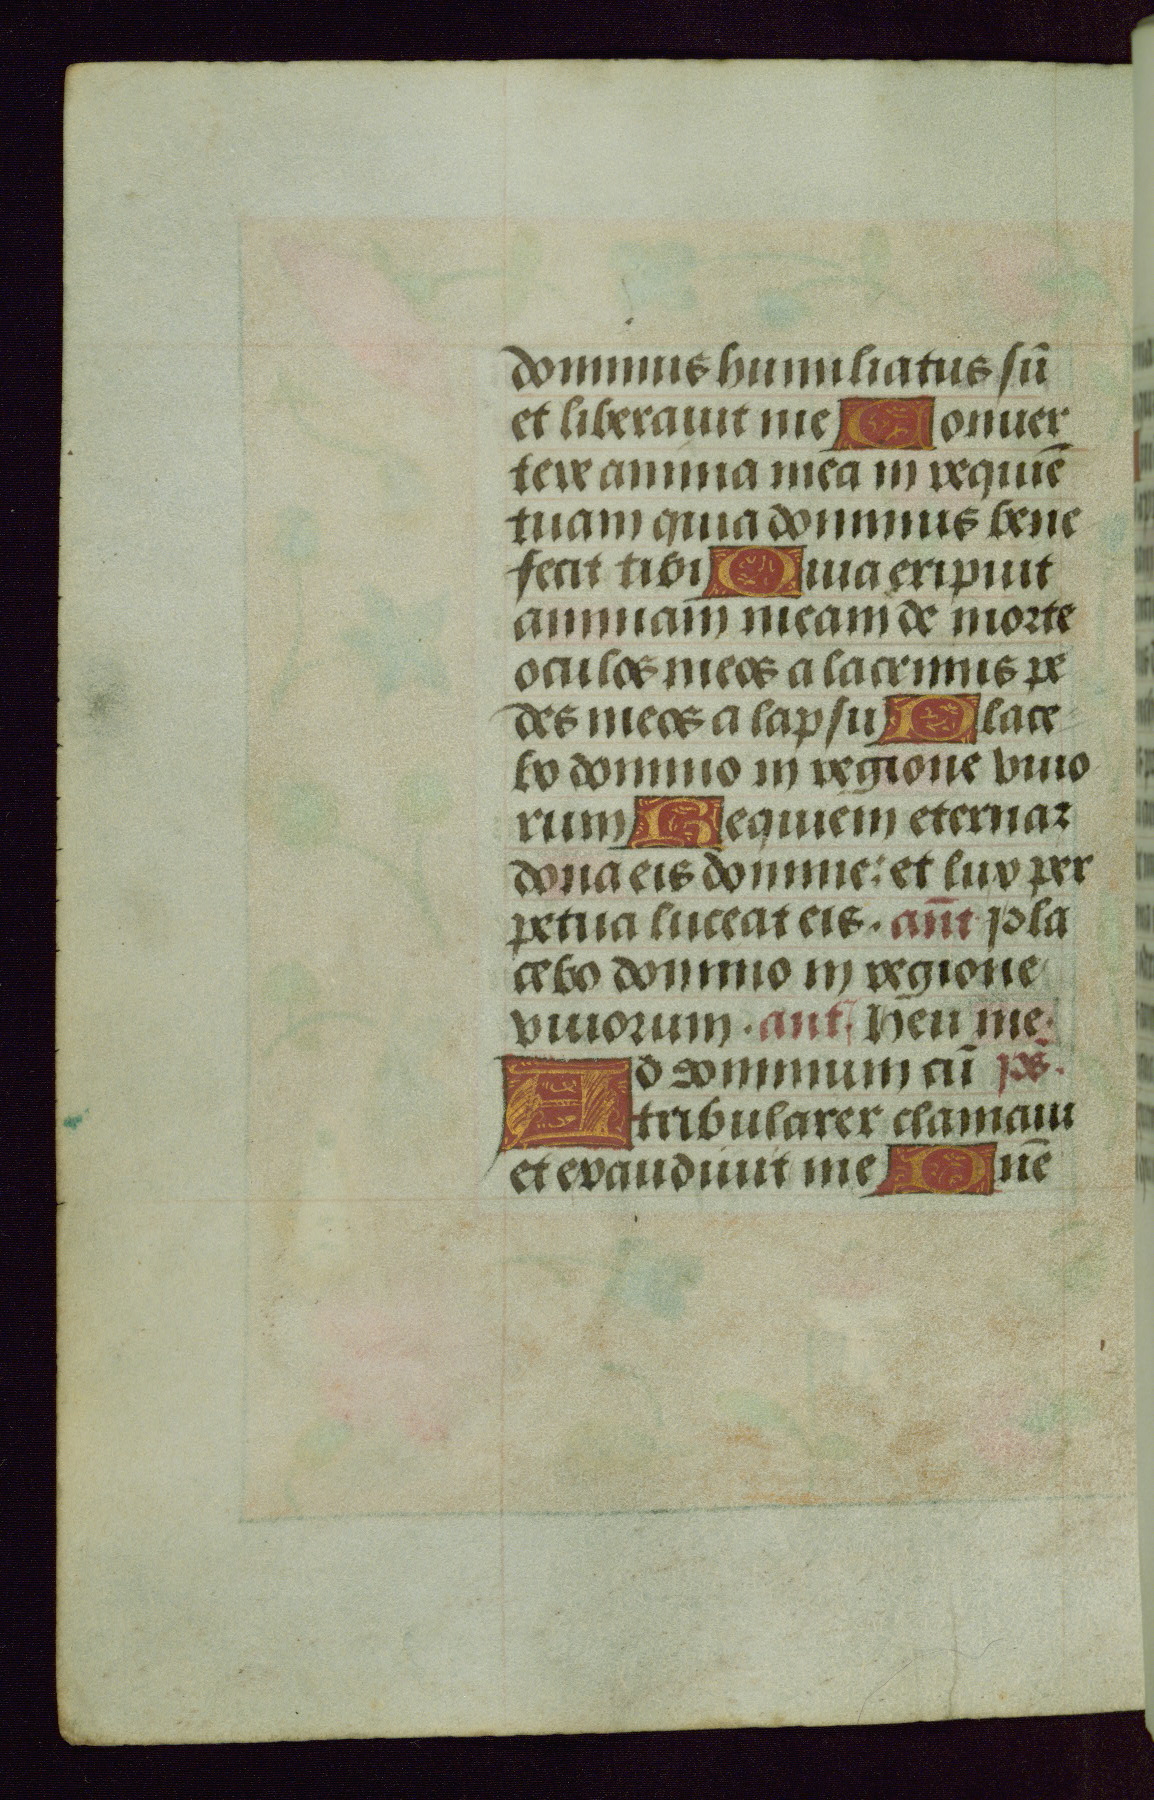 dominus humiliatus sū
et liberauit me Conuer
tere anima mea in requiē
tuam quia dominus bene
fecit tibi Quia eripuit
animam meam de morte
oculos meos a lacrimis pe
des meos a lapsu Place
bo domino in regione viuo
rum Requiem eternaz
dona eis domine: et lux per
petua luceat eis. an̄t Pla
cebo domino in regione
viuorum. ant. Heu me.
Ad dominum cū ps̄.
tribularer clamaui
et exaudiuit me Dn̄e